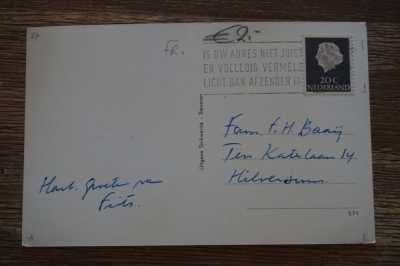 27
FR.
€ 2.-
IS UW ADRES NIET JUIST
EN VOLLEDIG VERMELD
LICHT DAN AFZENDER IN
20 C
NEDERLAND
Uitgave Strikwerda - Stavoren
Fam. t. H. Baaij
Ten Katelaan 14
Hilversum.
Hart. groeten van
Fits.
571